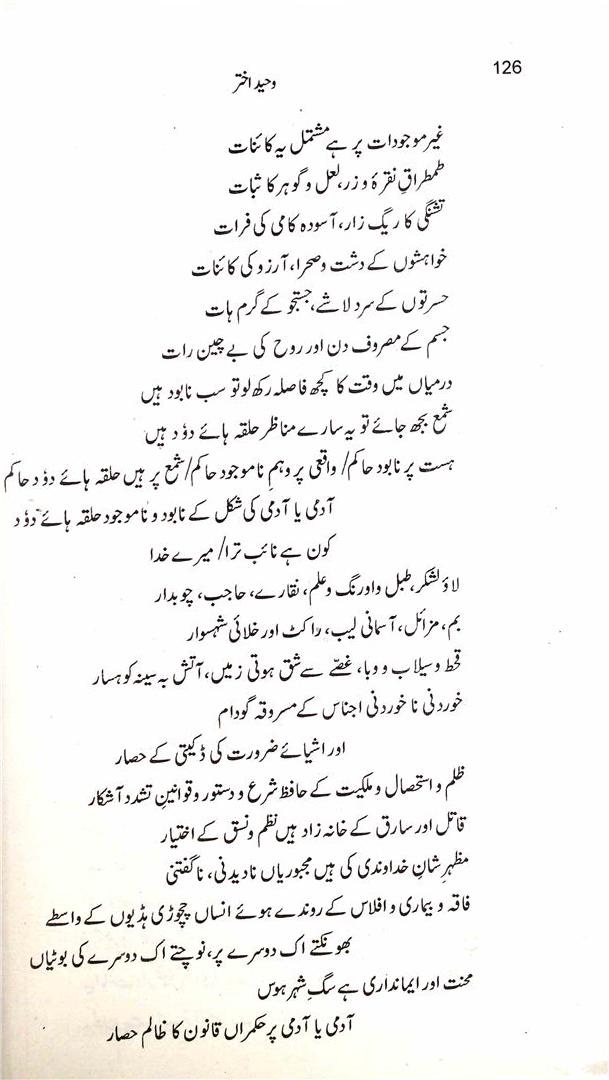 126
وحید اختر
غیر موجودات پر ہے مشتمل یہ کائنات
طمطراقِ نقرۂ و زر، لعل و گوہر کا ثبات
تشنگی کا ریگ زار، آسودہ کامی کی فرات
خواہشوں کے دشت و صحرا، آرزو کی کائنات
حسرتوں کے سرد لاشے، جستجو کے گرم ہات
جسم کے مصروف دن اور روح کی بے چین رات
درمیاں میں وقت کا کچھ فاصلہ رکھ لو تو سب نابود ہیں
شمع بجھ جائے تو یہ سارے مناظر حلقہ ہائے دوٗد ہیں
ہست پر نابود حاکم/ واقعی پر وہمِ ناموجود حاکم/ شمع پر ہیں حلقہ ہائے دوٗد حاکم
آدمی یا آدمی کی شکل کے نابود و ناموجود حلقہ ہائے دوٗد
کون ہے نائب ترا/ میرے خدا
لاؤ لشکر، طبل و اورنگ و علم، نقارے، حاجب، چوبدار
بم، مزائل، آسمانی لیب، راکٹ اور خلائی شہسوار
قحط و سیلاب و وبا، غصّے سے شق ہوتی زمیں، آتش بہ سینہ کوہسار
خوردنی نا خوردنی اجناس کے مسروقہ گودام
اور اشیائے ضرورت کی ڈکیتی کے حصار
ظلم و استحصال و ملکیت کے حافظ شرع و دستور و قوانینِ تشدد آشکار
قاتل اور سارق کے خانہ زاد ہیں نظم و نسق کے اختیار
مظہرِ شانِ خداوندی کی ہیں مجبوریاں نادیدنی، ناگفتنی
فاقہ و بیماری و افلاس کے روندے ہوئے انساں چچوڑی ہڈیوں کے واسطے
بھونکتے اک دوسرے پر، نوچتے اک دوسرے کی بوٹیاں
محنت اور ایمانداری ہے سگِ شہرِ ہوس
آدمی یا آدمی پر حکمراں قانون کا ظالم حصار